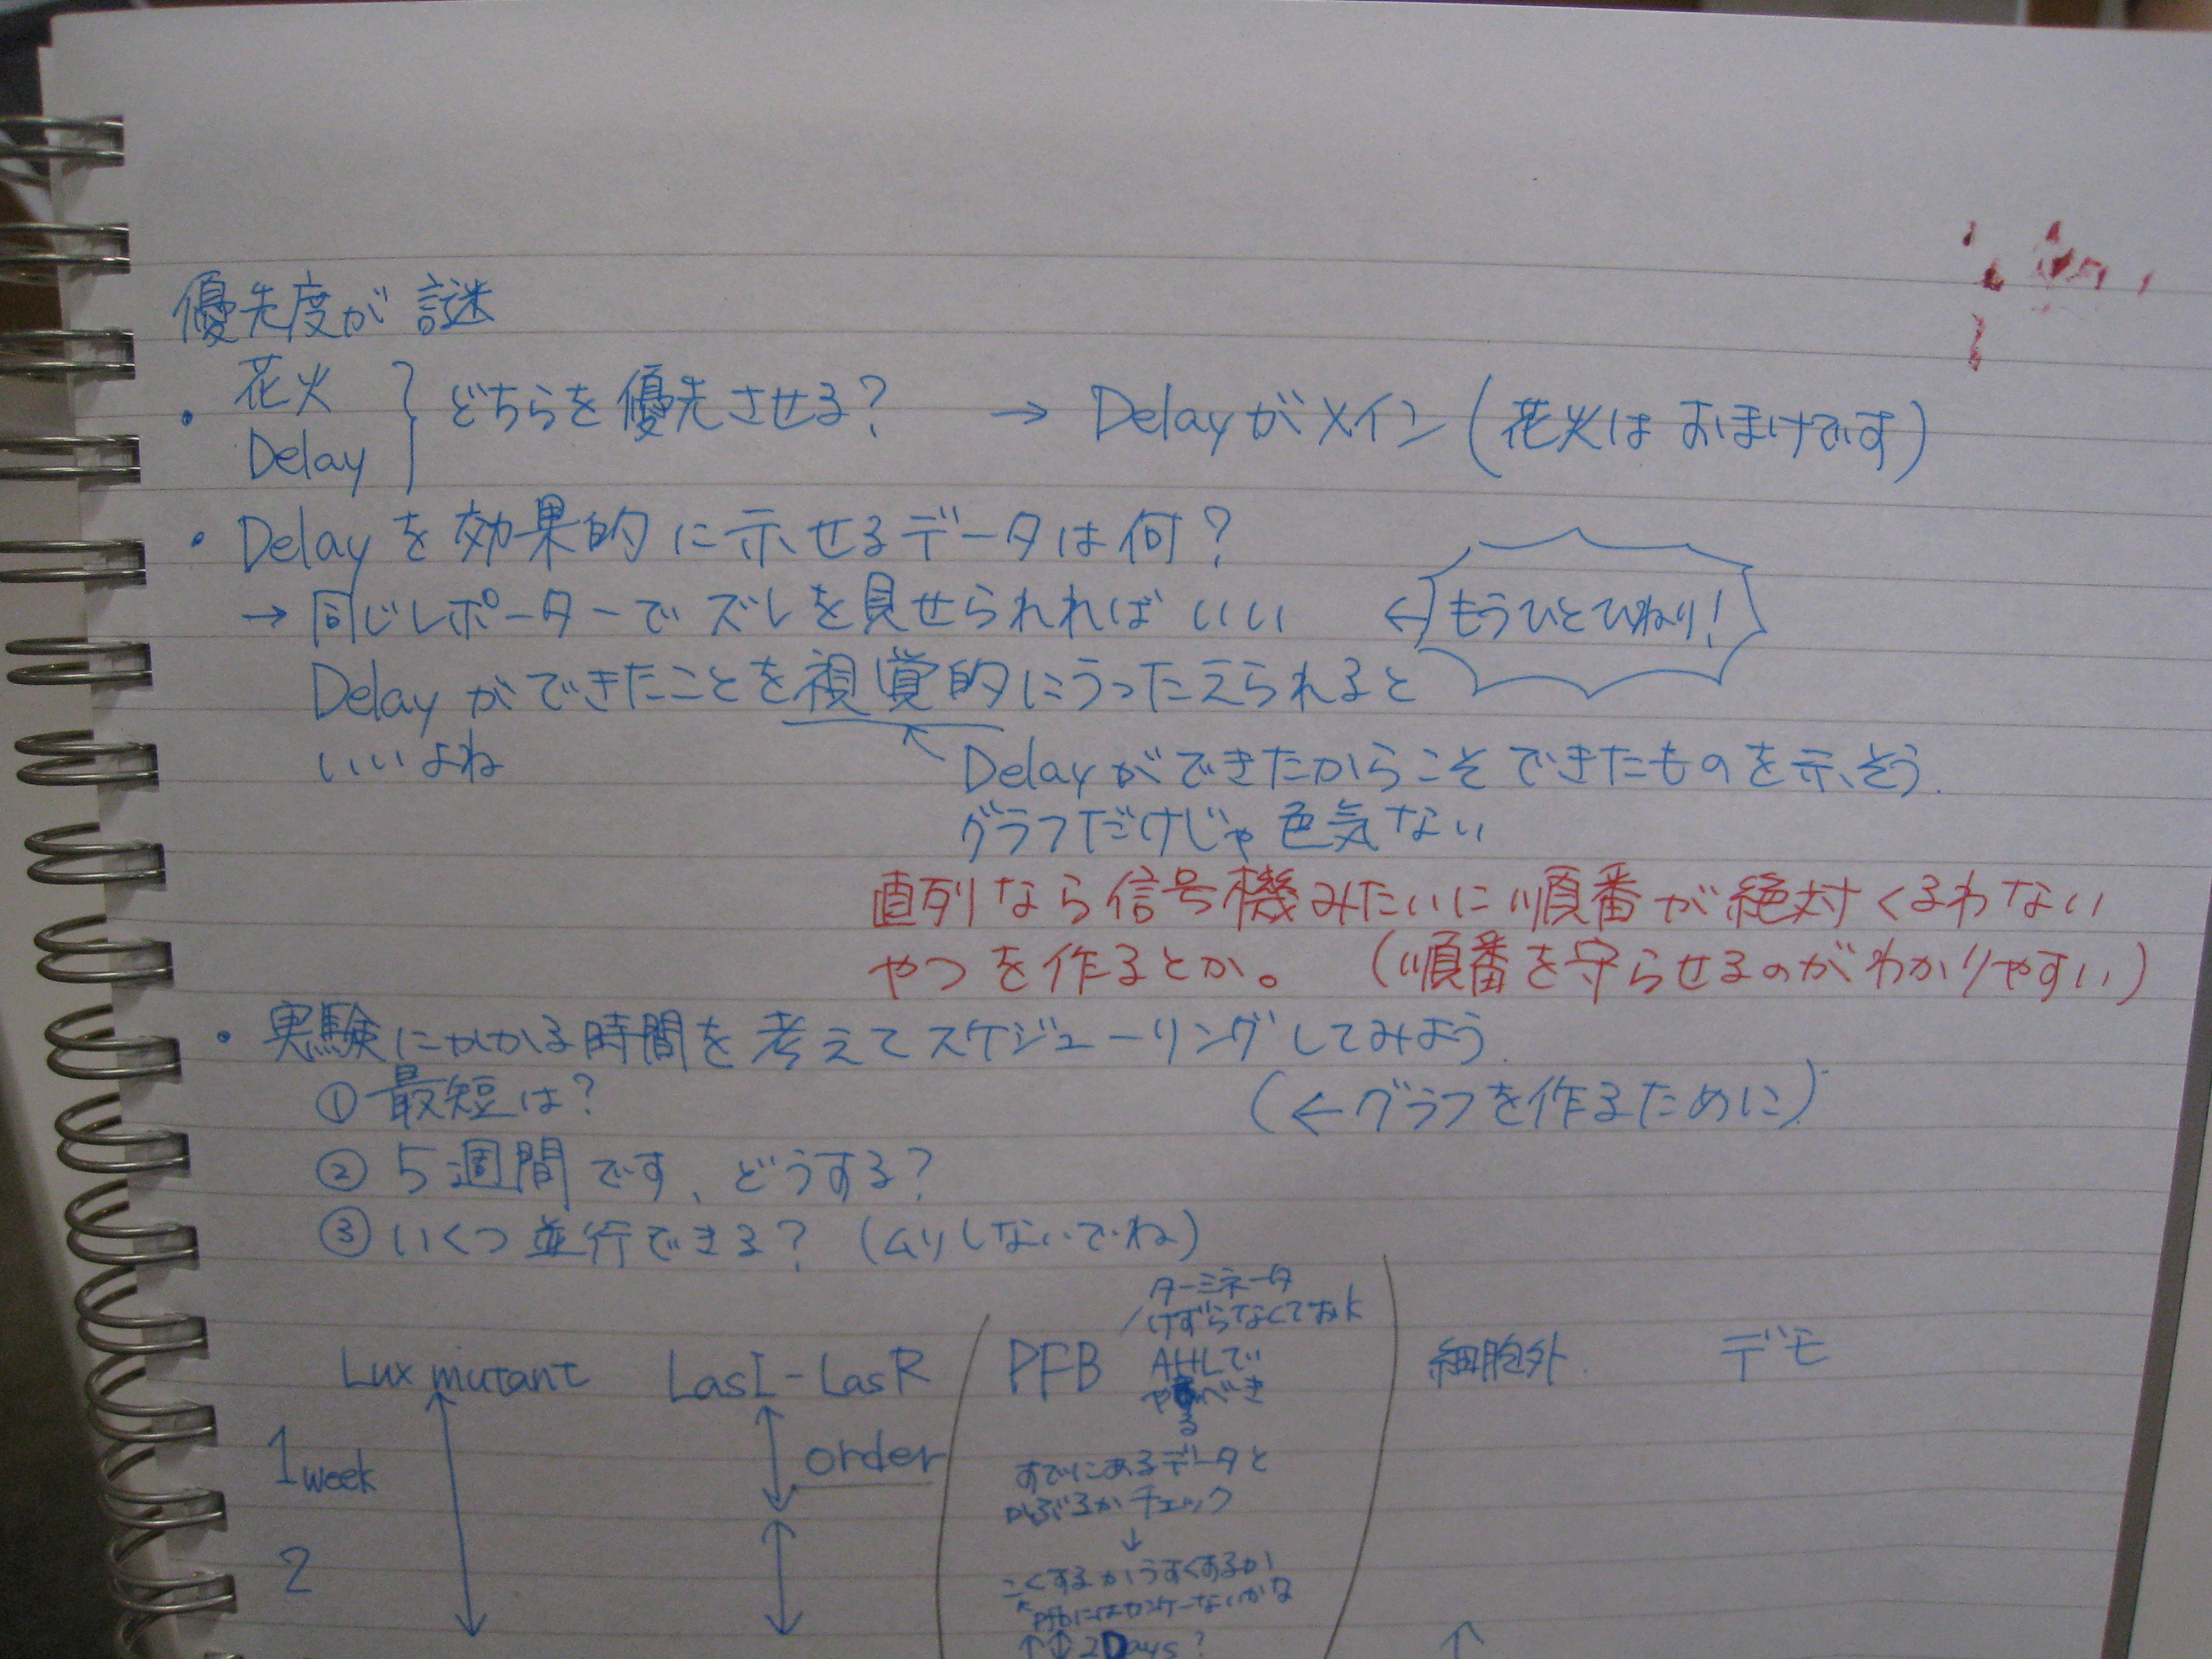 優先度が謎
・花火
Delay
どちらを優先させる? → Delayがメイン(花火はおまけです)
・Delayを効果的に示せるデータは何?
→ 同じレポーターでズレを見せられればいい ← もうひとひねり!
Delayができたことを視覚的にうったえられると
いいよね
Delayができたからこそできたものを示そう.
グラフだけじゃ色気ない
直列なら信号機みたいに順番が絶対くるわない
やつを作るとか。 (順番を守らせるのがわかりやすい)
・実験にかかる時間を考えてスケジューリングしてみよう.
① 最短は? (←グラフを作るために)
② 5週間です、どうする?
③ いくつ並行できる? (ムリしないでね)
ターミネータ
けずらなくておk
Lux mutant LasI-LasR PFB AHLで 細胞外 デモ
やるべき
1 week order すでにあるデータと
かぶるかチェック
↓
2 こくするかうすくするか
PFBにはカンケーないかな
↑↕ 2Days?